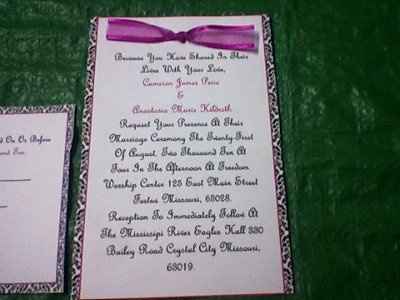 d On Or Before
Because You Have Shared In Their
Lives With Your Love,
Cameron James Price
&
Anastasia Marie Hildreth
Request Your Presence At Their
Marriage Ceremony The Twenty-First
Of August, Two Thousand Ten At
Four In The Afternoon At Freedom
Worship Center 125 East Main Street
Festus Missouri, 63028.
Reception To Immediately Follow At
The Mississippi River Eagles Hall 330
Bailey Road Crystal City Missouri,
63019.